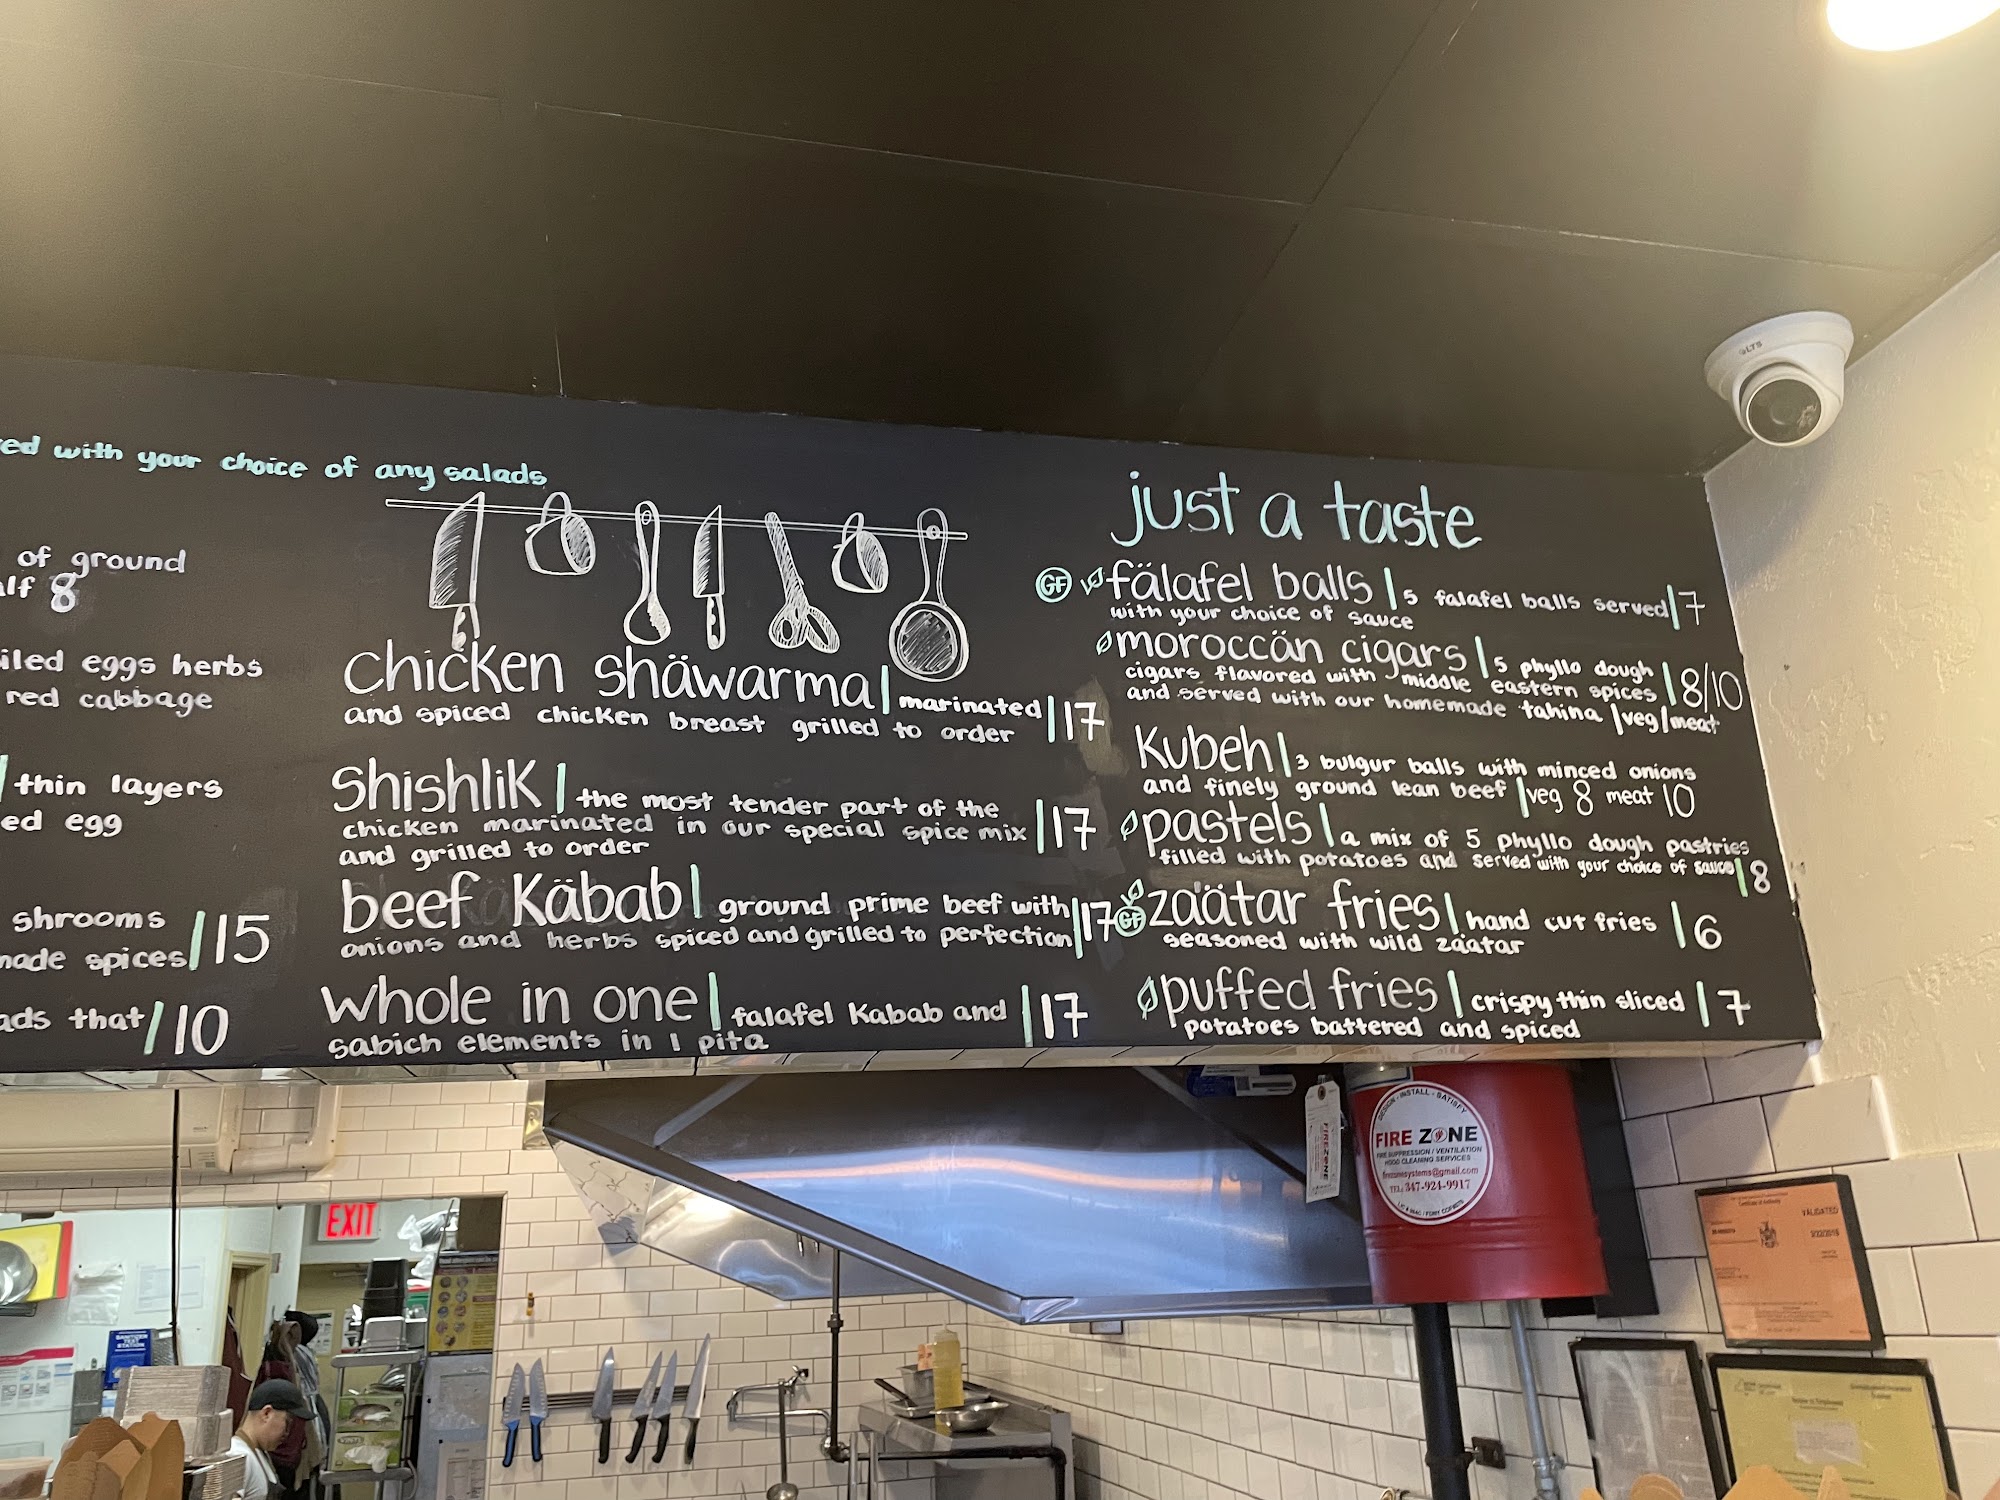 ed with your choice of any salads
of ground
alf 8
iled eggs herbs
red cabbage
thin layers
ed egg
shrooms
made spices | 15
ads that | 10
chicken shäwarma | marinated
and spiced chicken breast grilled to order | 17
shishlik | the most tender part of the
chicken marinated in our special spice mix | 17
and grilled to order
beef Käbab | ground prime beef with
onions and herbs spiced and grilled to perfection | 17
whole in one | falafel Kabab and | 17
sabich elements in 1 pita
just a taste
GF fälafel balls | 5 falafel balls served | 7
with your choice of sauce
moroccän cigars | 5 phyllo dough
cigars flavored with middle eastern spices | 8/10
and served with our homemade tahina | veg | meat
Kubeh | 3 bulgur balls with minced onions
and finely ground lean beef | veg 8 meat 10
pastels | a mix of 5 phyllo dough pastries
filled with potatoes and served with your choice of sauce | 8
GF zaätar fries | hand cut fries | 6
seasoned with wild zaatar
puffed fries | crispy thin sliced | 7
potatoes battered and spiced
LTS
DESIGN - INSTALL - SATISFY
FIRE ZONE
FIRE SUPPRESSION / VENTILATION
HOOD CLEANING SERVICES
firezonesystems@gmail.com
TEL: 347-924-9917
FIREZONE
EXIT
SANITIZER
TEST
STATION
VALIDATED